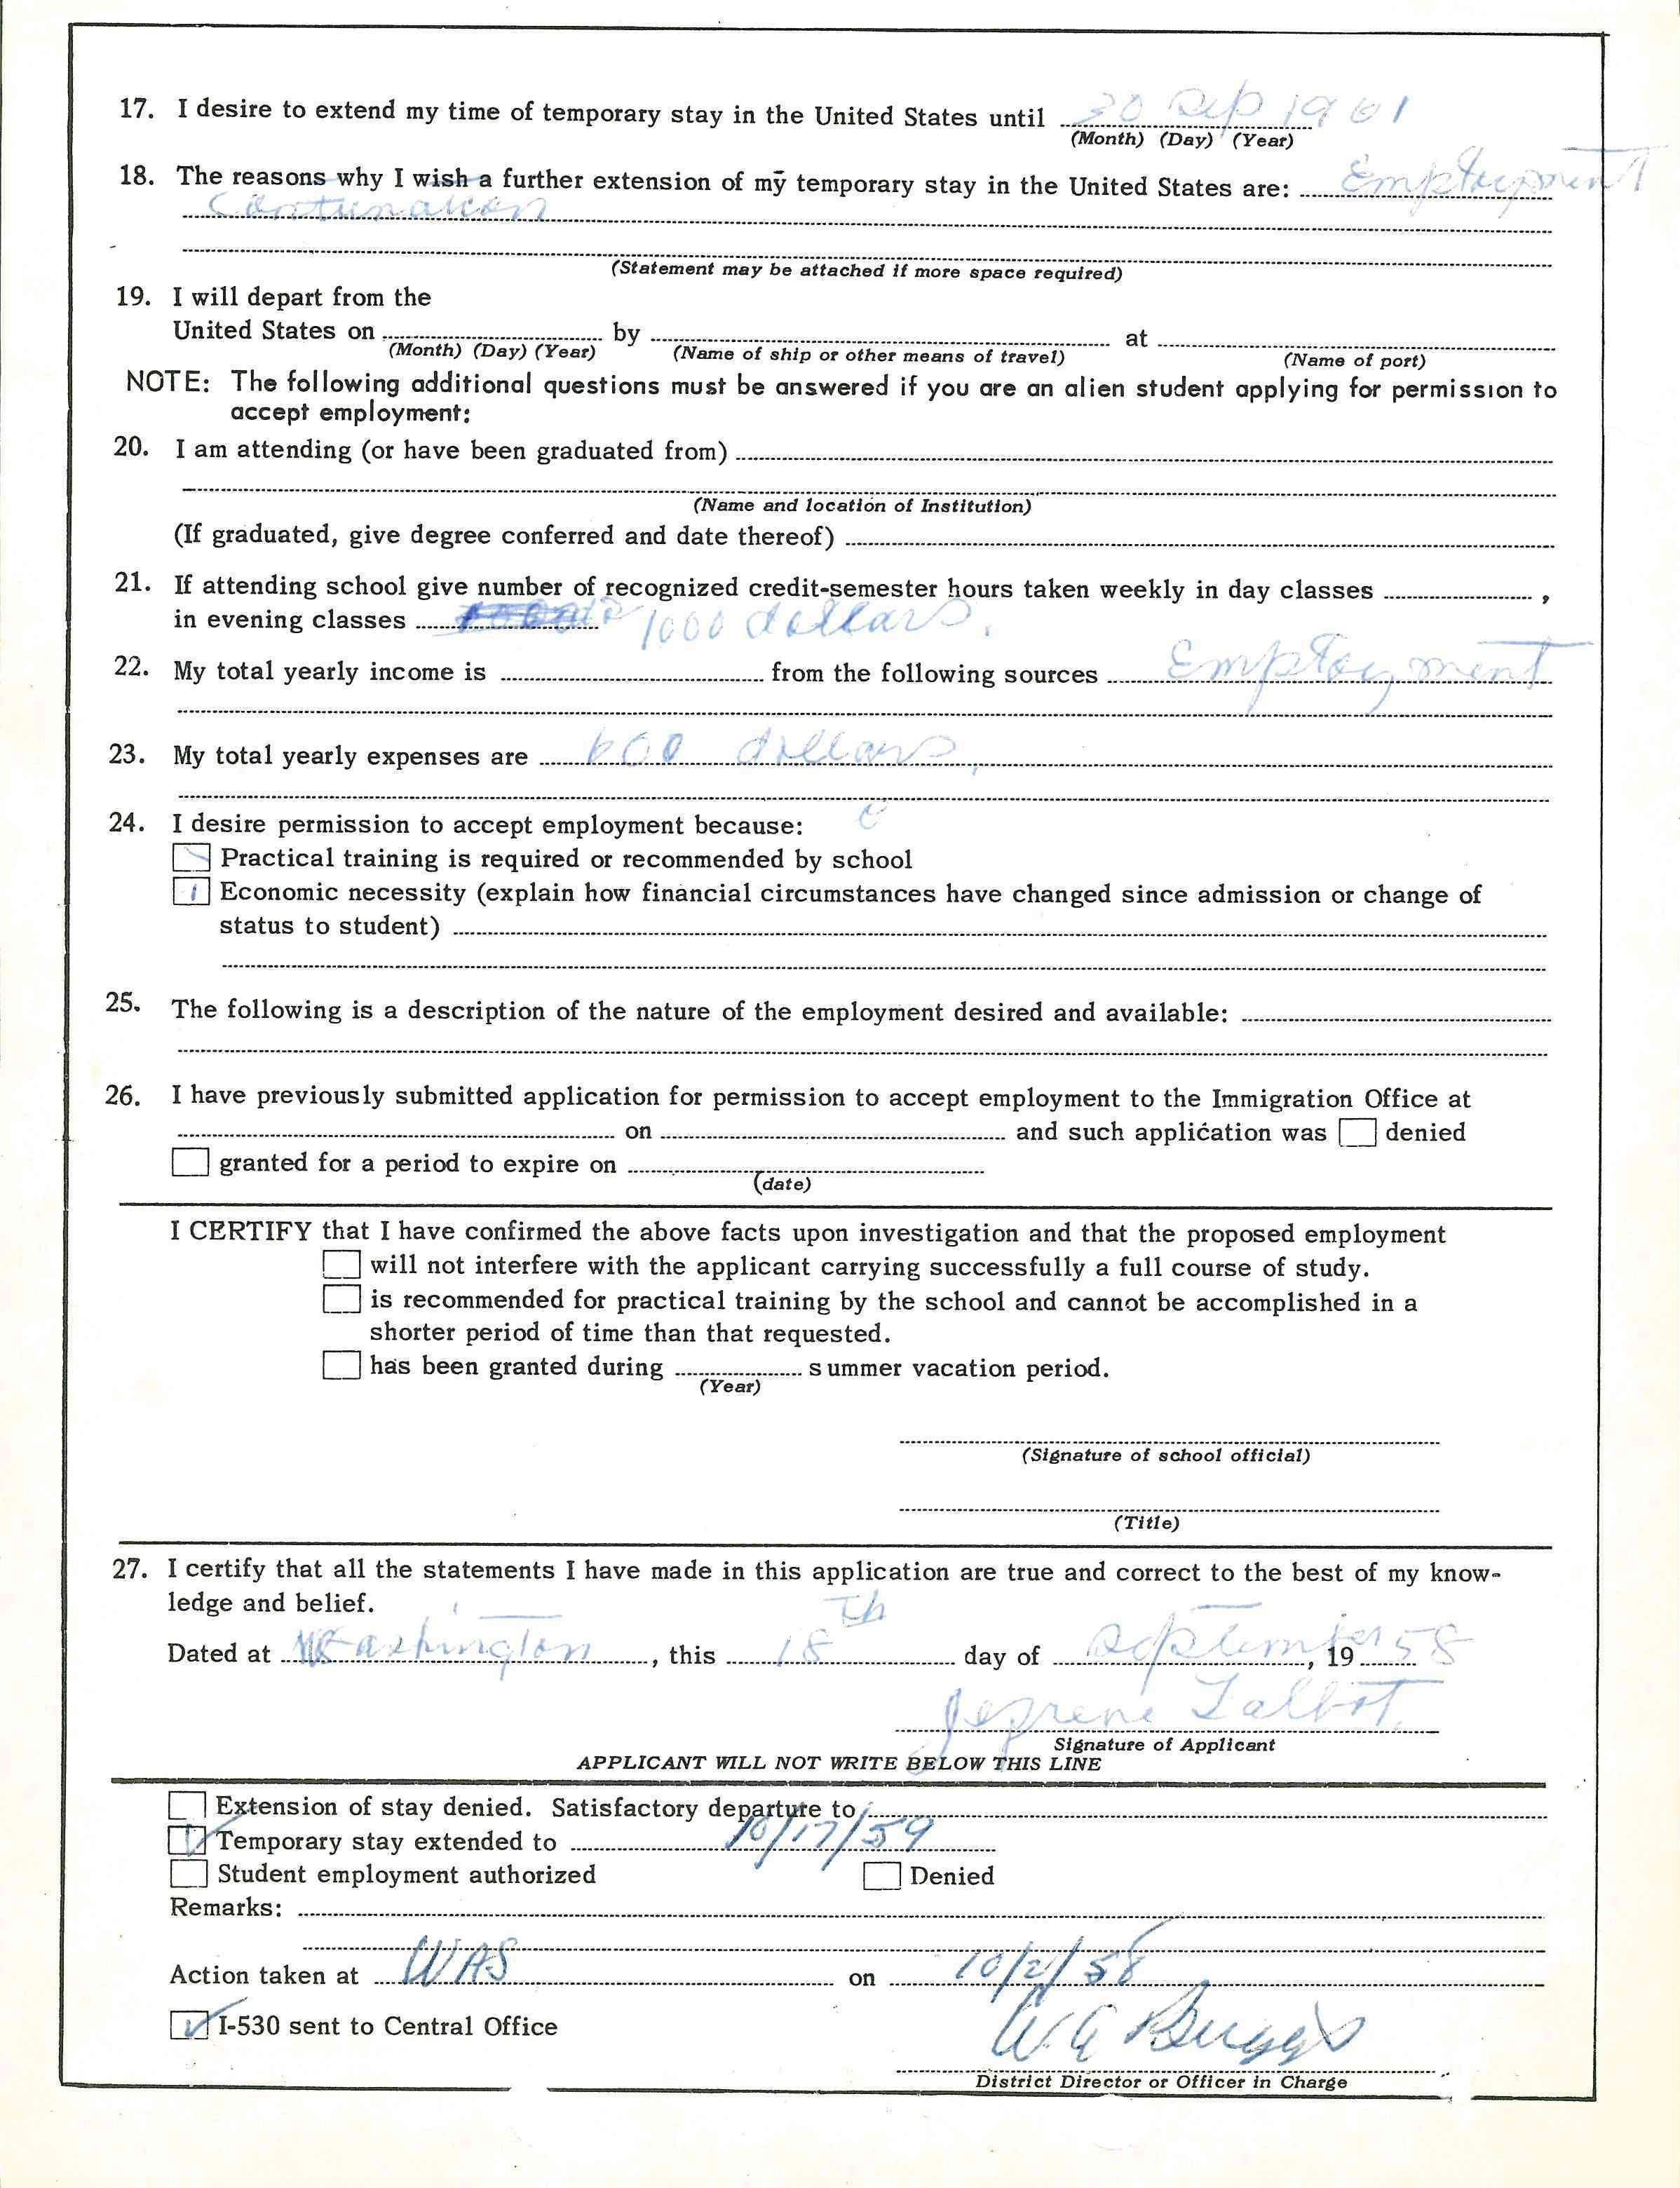 17. I desire to extend my time of temporary stay in the United States until 30 Sep 1961
(Month) (Day) (Year)
18. The reasons why I wish a further extension of my temporary stay in the United States are: Employment
(Statement may be attached if more space required)
19. I will depart from the
United States on by at
(Month) (Day) (Year) (Name of ship or other means of travel) (Name of port)
NOTE: The following additional questions must be answered if you are an alien student applying for permission to
accept employment:
20. I am attending (or have been graduated from)
(Name and location of Institution)
(If graduated, give degree conferred and date thereof)
21. If attending school give number of recognized credit-semester hours taken weekly in day classes ,
in evening classes 1000 dollars.
22. My total yearly income is from the following sources Employment
23. My total yearly expenses are 600 dollars,
24. I desire permission to accept employment because:
Practical training is required or recommended by school
Economic necessity (explain how financial circumstances have changed since admission or change of
status to student)
25. The following is a description of the nature of the employment desired and available:
26. I have previously submitted application for permission to accept employment to the Immigration Office at
on and such application was denied
granted for a period to expire on
(date)
I CERTIFY that I have confirmed the above facts upon investigation and that the proposed employment
will not interfere with the applicant carrying successfully a full course of study.
is recommended for practical training by the school and cannot be accomplished in a
shorter period of time than that requested.
has been granted during summer vacation period.
(Year)
(Signature of school official)
(Title)
27. I certify that all the statements I have made in this application are true and correct to the best of my know-
ledge and belief.
Dated at Washington, this 18th day of September, 1958
Talbot.
Signature of Applicant
APPLICANT WILL NOT WRITE BELOW THIS LINE
Extension of stay denied. Satisfactory departure to
Temporary stay extended to 10/17/59
Student employment authorized Denied
Remarks:
Action taken at WAS on 10/2/58
I-530 sent to Central Office
W. G. Buggs
District Director or Officer in Charge